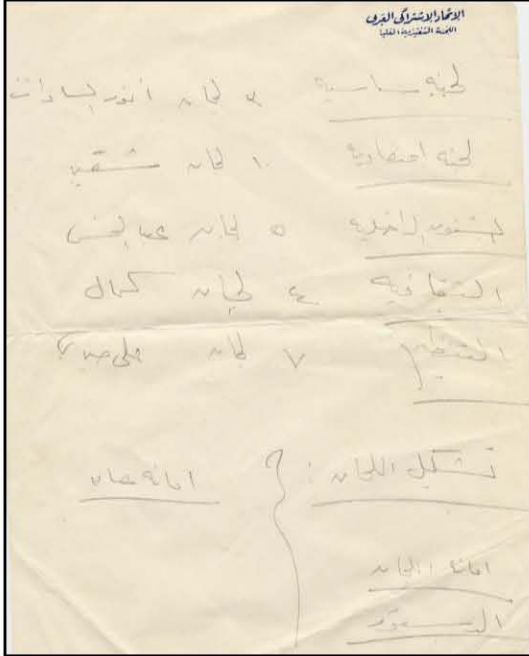 الاتحاد الاشتراكى العربى
اللجنة التنفيذية العليا
لجنة سياسية ٣ لجان أنور السادات
لجنة اقتصادية ١٠ لجان شقير
الشئون الداخلية ٥ لجان عبد المحسن
الثقافية ٤ لجان كمال
التنظيم ٧ لجان على صبرى
تشكيل اللجان : امانه عامه
امانه اللجان
الدستور